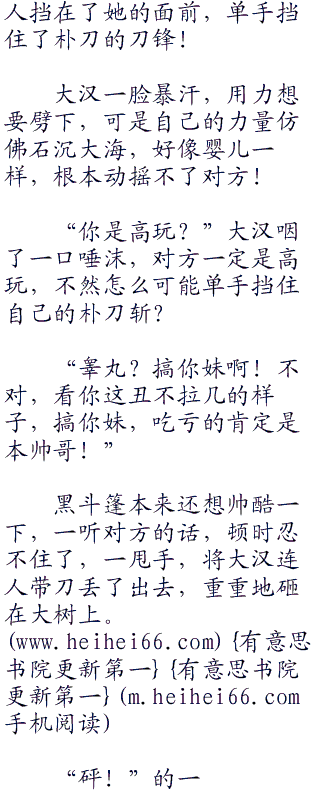 人挡在了她的面前，单手挡
住了朴刀的刀锋！
大汉一脸暴汗，用力想
要劈下，可是自己的力量仿
佛石沉大海，好像婴儿一
样，根本动摇不了对方！
“你是高玩？”大汉咽
了一口唾沫，对方一定是高
玩，不然怎么可能单手挡住
自己的朴刀斩？
“睾丸？搞你妹啊！不
对，看你这丑不拉几的样
子，搞你妹，吃亏的肯定是
本帅哥！”
黑斗篷本来还想帅酷一
下，一听对方的话，顿时忍
不住了，一甩手，将大汉连
人带刀丢了出去，重重地砸
在大树上。
(www.heihei66.com){有意思
书院更新第一}{有意思书院
更新第一}(m.heihei66.com
手机阅读)
“砰！”的一